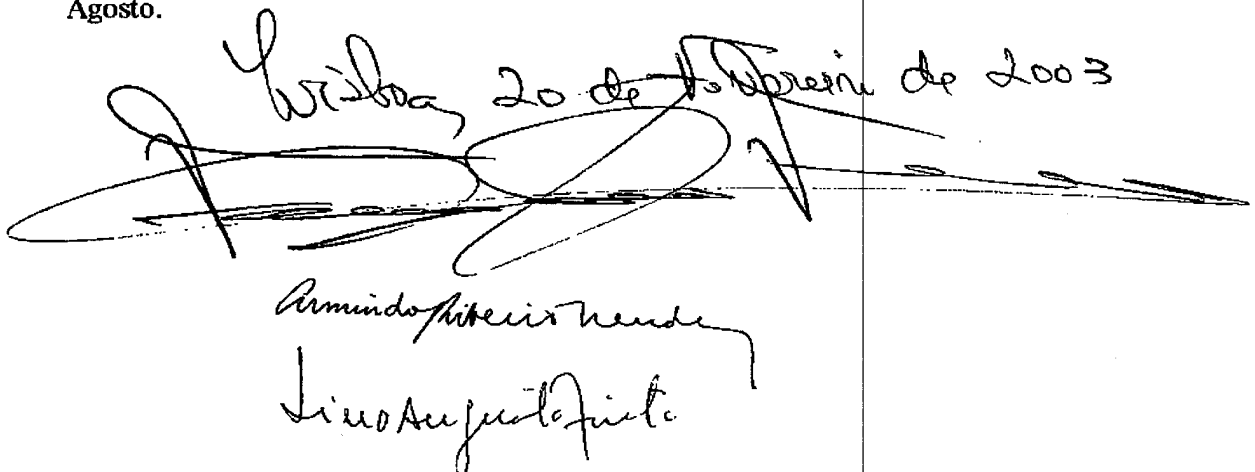 Agosto.
Lisboa, 20 de Fevereiro de 2003
Armindo Ribeiro Mendes
Lino Augusto Pinto